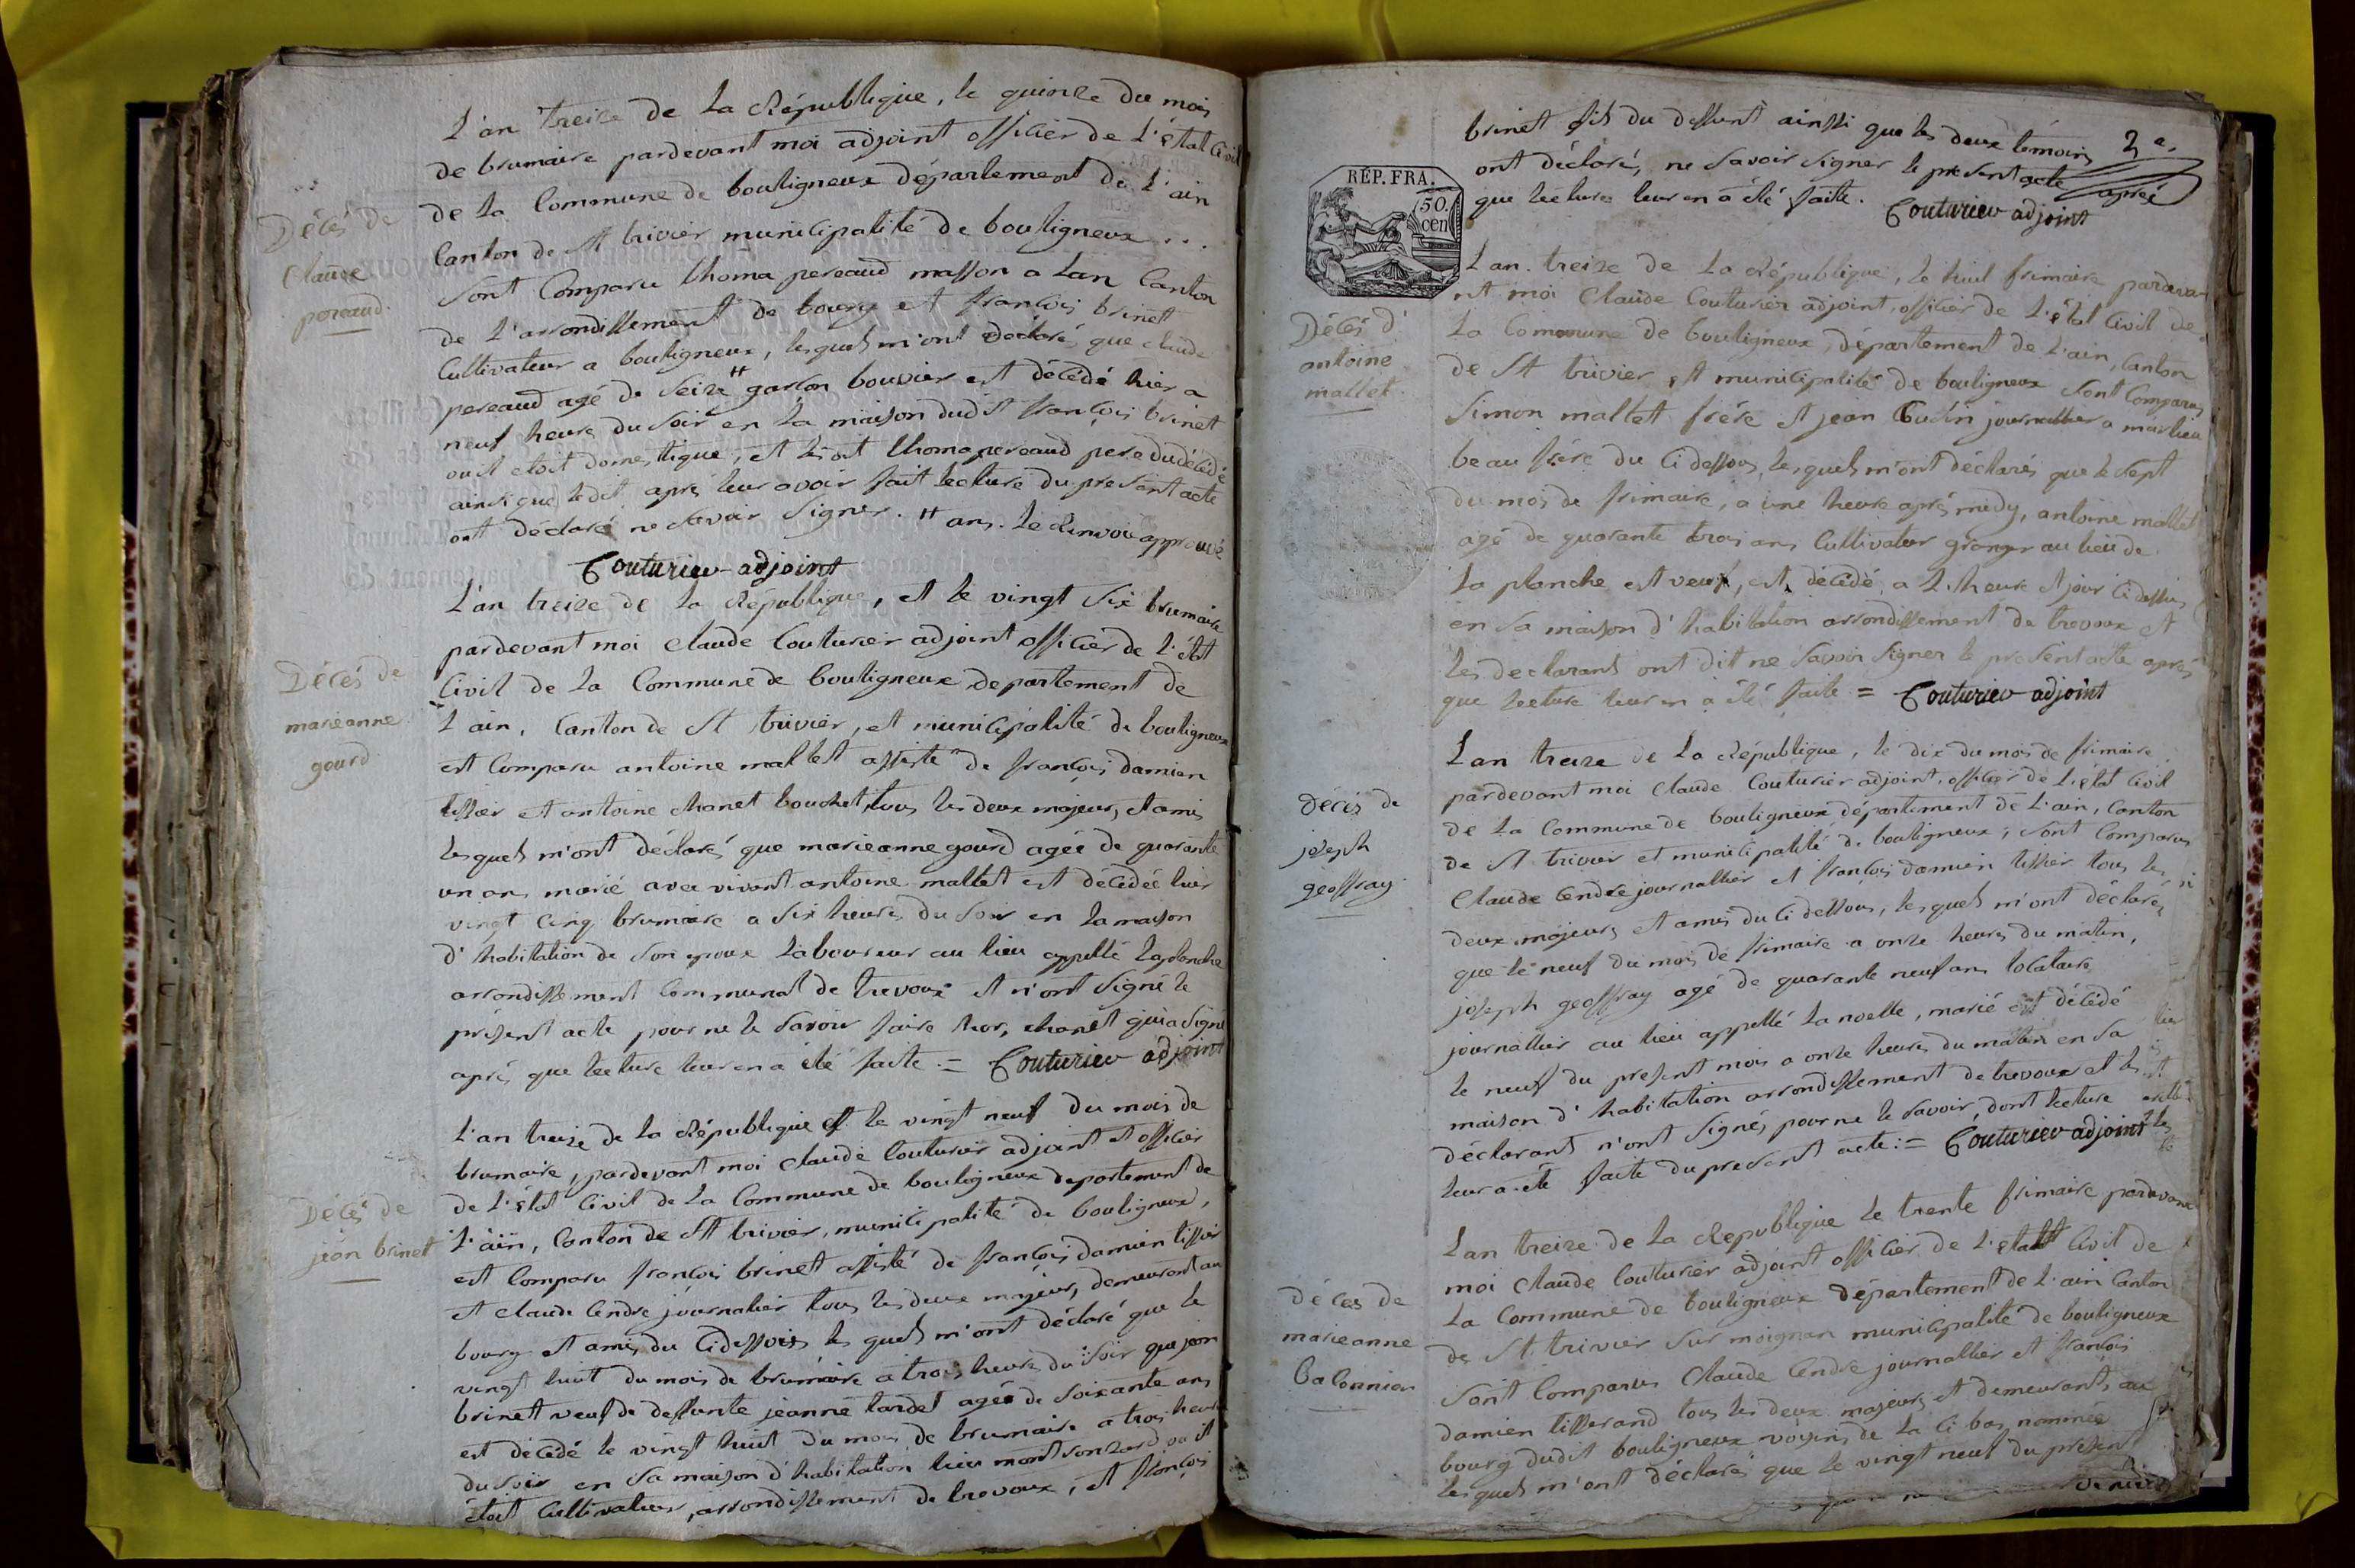 L'an treize de La République, le quinze du mois
de brumaire pardevant moi adjoint officier de L'état Civil
de La Commune de bouligneux département de L'ain
Canton de St trivier municipalité de bouligneux ...
Décés de
Claude
pereaud
Sont Comparu thoma pereaud masson a Lan Canton
de L'arrondissement de bourg et françois brinet
Cultivateur a bouligneux, lesquels m'ont déclaré, que claude
pereaud agé de Seize # garson bouvier est décédé hier a
neuf heure du Soir en La maison dudit françois brinet
ou il etoit domestique, et Led thoma pereaud pere du décédé
ainsi que ledit après leur avoir fait lecture du present acte
ont déclaré ne Savoir Signer. # ans. le Renvoi approuvé
Couturier adjoint
L'an treize de La République, et le vingt Six brumaire
pardevant moi claude Couturier adjoint officier de L'état
Décés de
marieanne
gourd
Civil de La Commune de bouligneux departement de
L'ain, Canton de St trivier, et municipalité de bouligneux
est Comparu antoine mallet assisté de françois damien
tissier et antoine chanet bouchet, tous les deux majeurs, et amis
lesquels m'ont déclaré que marieanne gourd agée de quarante
un ans marié avec vivant antoine mallet est décédée hier
vingt Cinq brumaire a Six heures du Soir en La maison
d'habitation de Son epoux Laboureur au lieu appellé Laplanche
arrondissement Communal de trevoux et n'ont Signé le
présent acte pour ne le Savoir faire hors, chanet qui a Signé
après que lecture leur en a été faite. = Couturier adjoint
L'an treize de La République et le vingt neuf du mois de
brumaire, pardevant moi claude Couturier adjoint et officier
de L'état Civil de La Commune de bouligneux departement de
Décés de
jean brinet
L'ain, Canton de St trivier, municipalité de bouligneux,
est Comparu françois brinet assisté de françois damien tissier
et claude Cendre journalier tous les deux majeurs, demeurant au
bourg et amis du Cidessous lesquels m'ont déclaré que le
vingt huit du mois de brumaire a trois heures du Soir que jean
brinet veuf de deffunte jeanne tardel agée de Soixante ans
est décédé le vingt huit du mois de brumaire a trois heures
du Soir en Sa maison d'habitation lieu montsonzard ou il
étoit Cultivateur, arrondissement de trevoux, et françois
brinet fils du deffunt ainssi que les deux témoins 2 e.
ont déclaré, ne Savoir Signer le present acte après
que lecture leur en a été faite. Couturier adjoint
RÉP. FRA.
50.
cen
L'an treize de La République, le huit frimaire pardeva-
nt moi Claude Couturier adjoint, officier de L'état Civil de
Décés d'
antoine
mallet
La Commune de bouligneux, département de L'ain, Canton
de St trivier et municipalité de bouligneux Sont Comparus
Simon mallet frère et jean journallier a marlieu
beau frère du Cidessous, lesquels m'ont déclarés que le Sept
du mois de frimaire, a une heure après midy, antoine mallet
agé de quarante trois ans, Cultivateur granger au lieu de
La planche et veuf, est décédé, a L'heure et jour Cidessus
en Sa maison d'habitation arrondissement de trevoux et
les declarant ont dit ne Savoir Signer le present acte après
que lecture leur en a été faite = Couturier adjoint
L'an treize de La République, le dix du mois de frimaire
pardevant moi Claude Couturier adjoint, officier de L'état Civil
Décés de
joseph
geoffray
de La Commune de bouligneux département de L'ain, Canton
de St trivier et municipalité de bouligneux, Sont Comparus
Claude Cendre journallier et françois damien tissier tous les
deux majeurs et amis du Ci dessous, lesquels m'ont déclarés
que le neuf du mois de frimaire a onze heures du matin,
joseph geoffray agé de quarante neuf ans locataire
journallier au lieu appellé La noelle, marié est décédé
le neuf du present mois a onze heures du matin en Sa
maison d'habitation arrondissement de trevoux et les
déclarant n'ont Signés pour ne le Savoir, dont lecture
leur a été faite du present acte := Couturier adjoint
L'an treize de La République le trente frimaire pardevant
moi claude Couturier adjoint officier de L'état Civil de
Décés de
marieanne
La Commune de bouligneux département de L'ain Canton
de St trivier Sur moignan municipalité de bouligneux
Sont Comparus Claude Cendre journallier et françois
damien tisserand tous les deux majeurs et demeurants au
bourg dudit bouligneux voisins de La Ci bas nommée
lesquels m'ont déclarés que le vingt neuf du présent